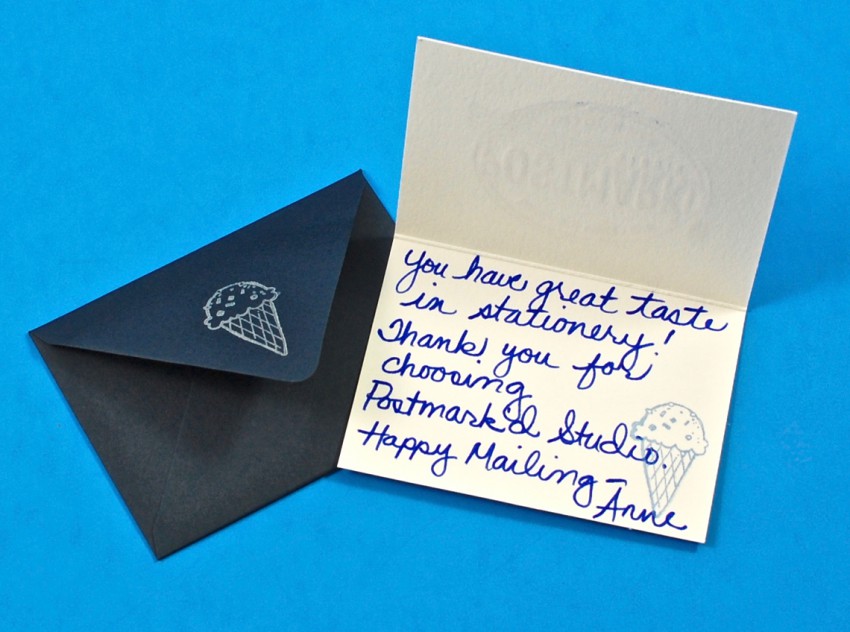 You have great taste
in stationery!
Thank you for
choosing
Postmark'd Studio.
Happy Mailing –
Anne